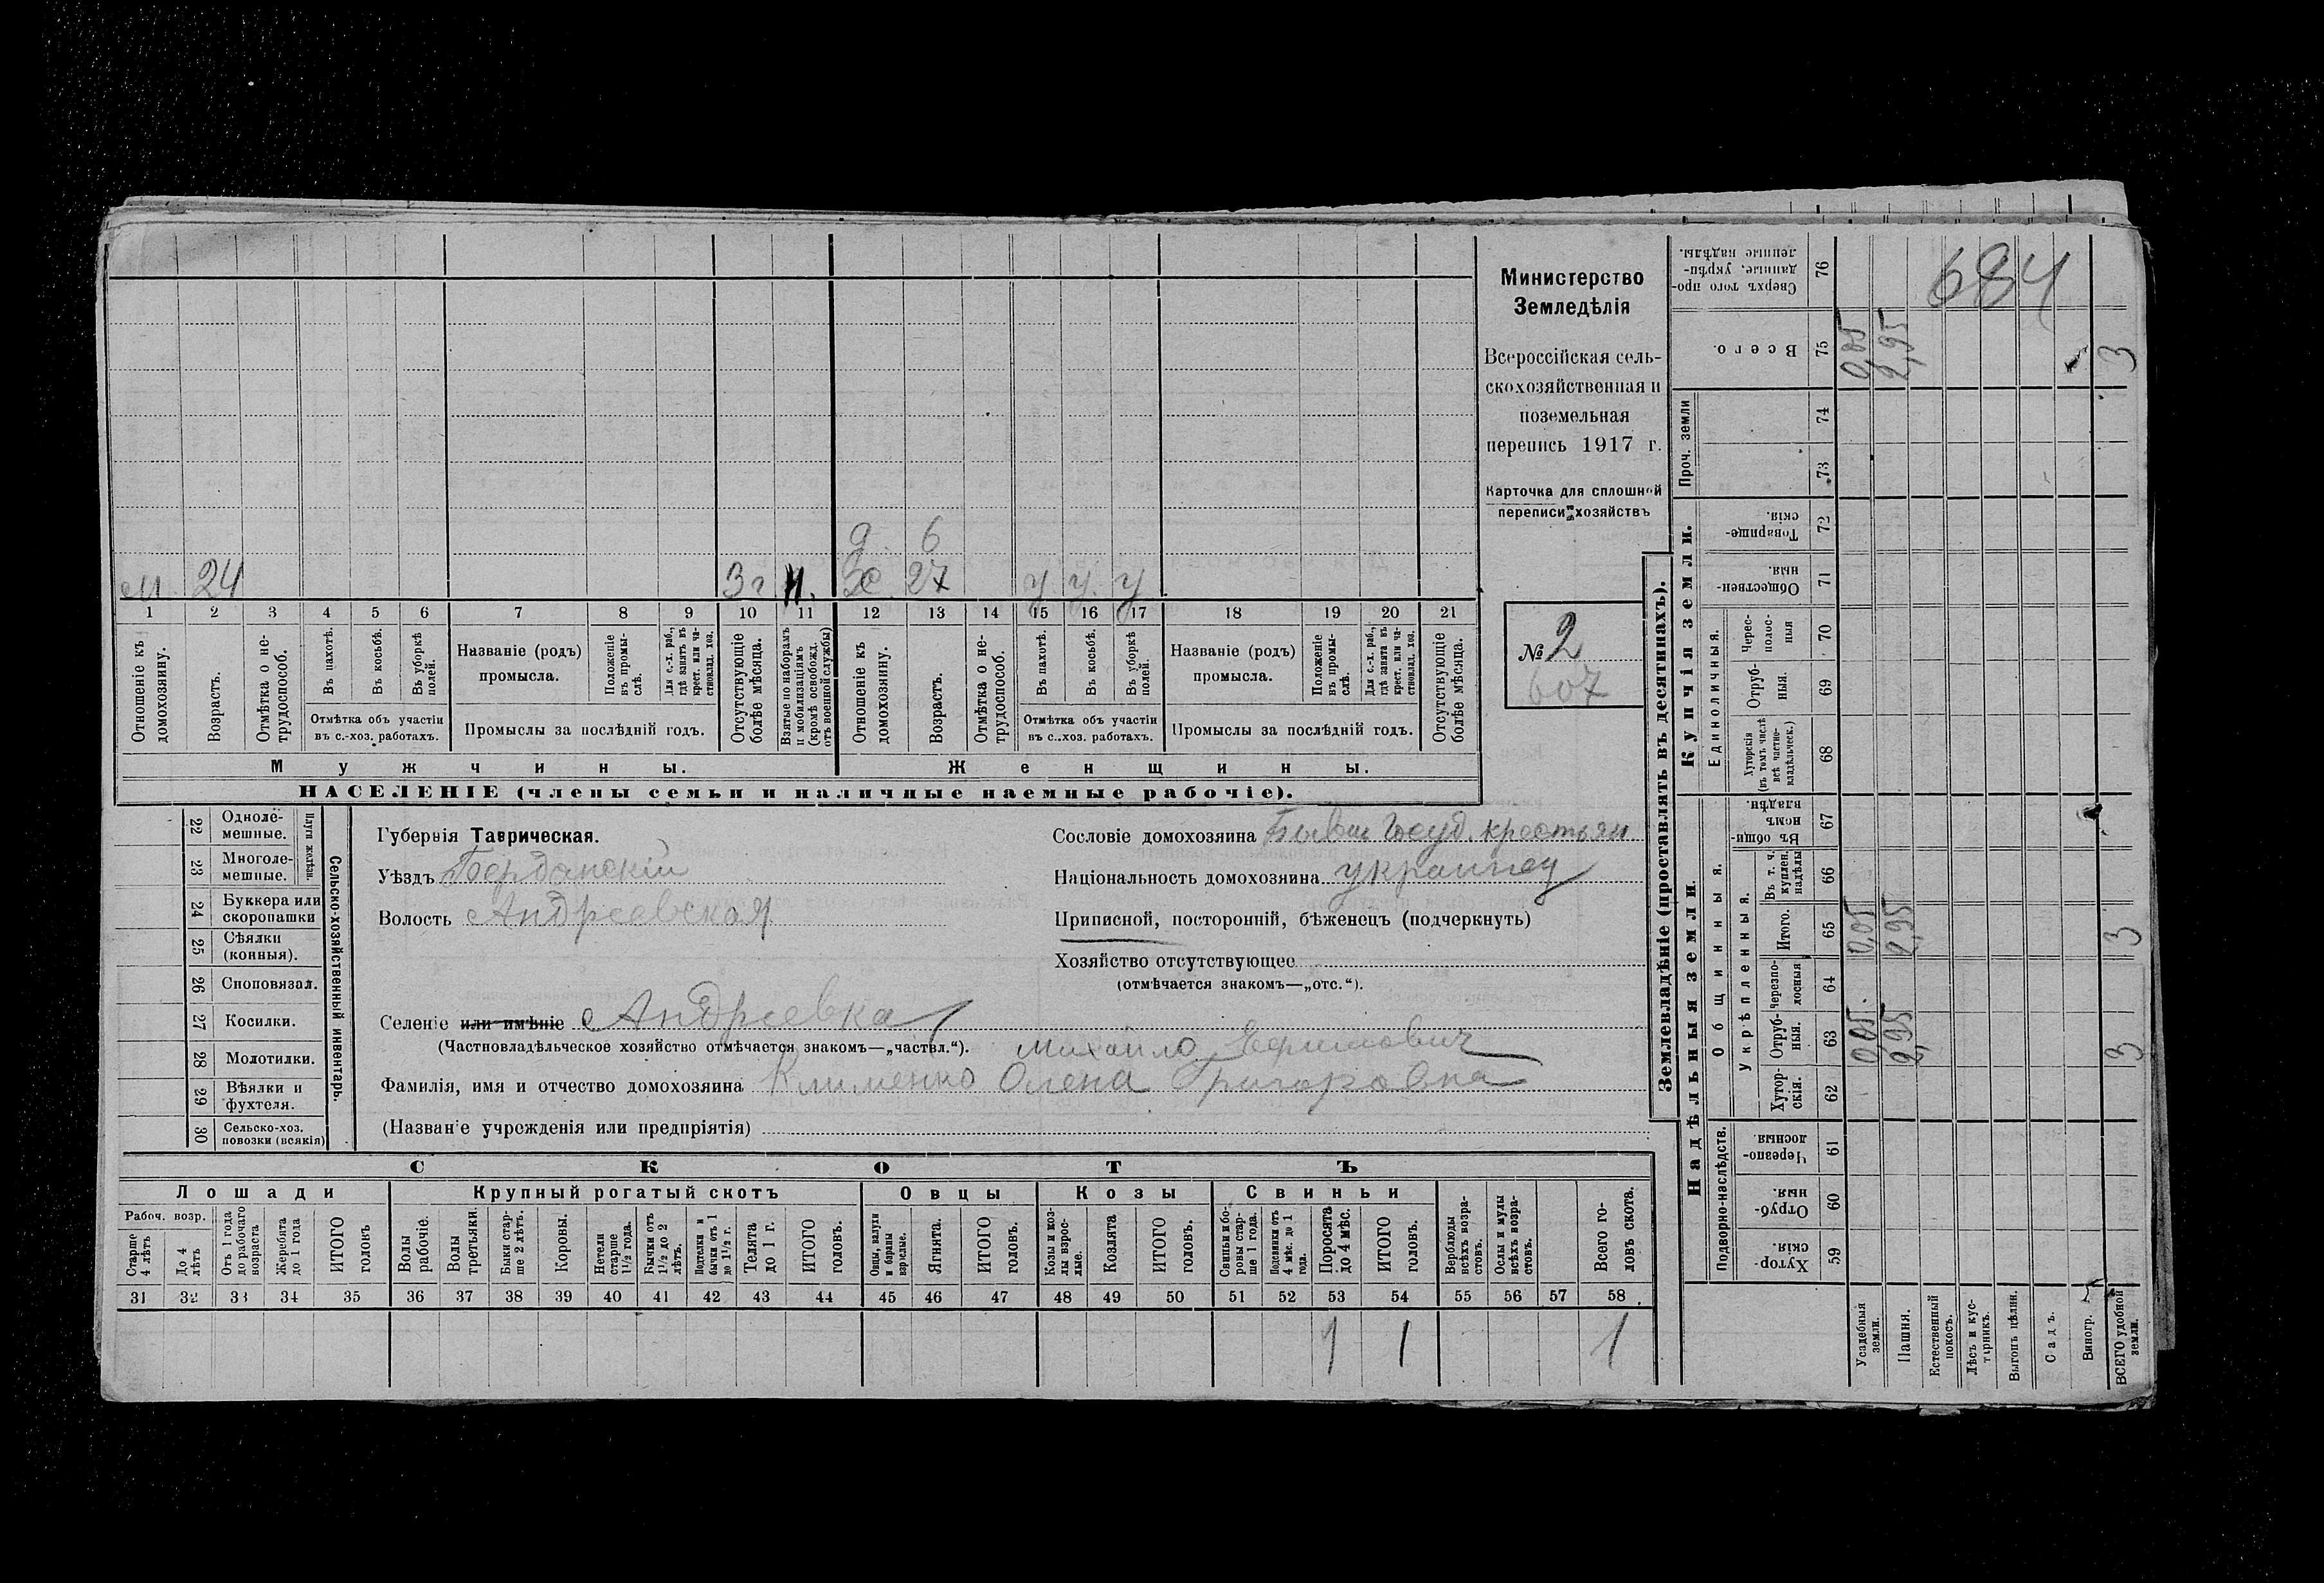 Министерство
Земледѣлія
Всероссійская сель-
скохозяйственная и
поземельная
перепись 1917 г.
Карточка для сплошной
переписи хозяйствъ
№ 2
607
684
д. 6
м 24 3 г н. ж. 27 у у. у
1 2 3 4 5 6 7 8 9 10 11 12 13 14 15 16 17 18 19 20 21
Отношеніе къ домохозяину.
Возрастъ.
Отмѣтка о не-трудоспособ.
Въ пахотѣ.
Въ косьбѣ.
Въ уборкѣ полей.
Отмѣтка объ участіи
въ с.-хоз. работахъ.
Названіе (родъ)
промысла.
Положеніе въ промы-слѣ.
Для с.-х. раб., гдѣ занятъ въ крест. или ча-стновлад. хоз.
Промыслы за послѣдній годъ.
Отсутствующіе болѣе мѣсяца.
Взятые по наборамъ и мобилизаціямъ (кромѣ освобожд. отъ военной службы)
Отношеніе къ домохозяину.
Возрастъ.
Отмѣтка о не-трудоспособ.
Въ пахотѣ.
Въ косьбѣ.
Въ уборкѣ полей.
Отмѣтка объ участіи
въ с.-хоз. работахъ.
Названіе (родъ)
промысла.
Положеніе въ промы-слѣ.
Для с.-х. раб., гдѣ занята въ крест. или ча-стновлад. хоз.
Промыслы за послѣдній годъ.
Отсутствующіе болѣе мѣсяца.
Мужчины.
Женщины.
НАСЕЛЕНІЕ (члены семьи и наличные наемные рабочіе).
Сельско-хозяйственный инвентарь.
Плуги желѣзн.
22 Одноле-мешные.
23 Многоле-мешные.
24 Буккера или скоропашки
25 Сѣялки (конныя).
26 Сноповязал.
27 Косилки.
28 Молотилки.
29 Вѣялки и фухтеля.
30 Сельско-хоз. повозки (всякія)
Губернія Таврическая.
Уѣздъ Бердянскій
Волость Андреевская
Селеніе или имѣніе Андреевка
(Частновладѣльческое хозяйство отмѣчается знакомъ—„частвл.“).
Сословіе домохозяина Бывш Госуд. крестьян
Національность домохозяина украинец
Приписной, посторонній, бѣженецъ (подчеркнуть)
Хозяйство отсутствующее
(отмѣчается знакомъ—„отс.“).
Михайло Ефимович
Фамилія, имя и отчество домохозяина Клименко Олена Григоровна
(Названіе учрежденія или предпріятія)
СКОТЪ
Лошади
Крупный рогатый скотъ
Овцы
Козы
Свиньи
Рабоч. возр.
Старше 4 лѣтъ
До 4 лѣтъ
Отъ 1 года до рабочаго возраста
Жеребята до 1 года
ИТОГО головъ
Волы рабочіе.
Волы третьяки.
Быки стар-ше 2 лѣтъ.
Коровы.
Нетели старше 1½ года.
Бычки отъ 1½ до 2 лѣтъ.
Подтелки и бычки отъ 1 до 1½ г.
Телята до 1 г.
ИТОГО головъ.
Овцы, валухи и бараны взрослые.
Ягнята.
ИТОГО головъ.
Козы и коз-лы взрос-лые.
Козлята
ИТОГО головъ.
Свиньи и бо-ровы стар-ше 1 года.
Подсвинки отъ 4 мѣс. до 1 года.
Поросята до 4 мѣс.
ИТОГО головъ.
Верблюды всѣхъ возра-стовъ.
Ослы и мулы всѣхъ возра-стовъ.
Всего го-ловъ скота.
31 32 33 34 35 36 37 38 39 40 41 42 43 44 45 46 47 48 49 50 51 52 53 54 55 56 57 58
1 1 1
Землевладѣніе (проставлять въ десятинахъ).
Надѣльныя земли.
Купчія земли.
Проч. земли
Подворно-наслѣдств.
Общинныя.
Укрѣпленныя.
Единоличныя.
Хутор-скія. 59
Отруб-ныя. 60
Черезпо-лосныя 61
Хутор-скія. 62
Отруб-ныя. 63
Черезпо-лосныя 64
Итого. 65
Въ т. ч. куплен. надѣлы 66
Въ общин-номъ владѣн. 67
Хуторскія (въ томъ числѣ всѣ частно-владѣльческ.) 68
Отруб-ныя. 69
Черес-полос-ныя 70
Обществен-ныя. 71
Товарище-скія. 72
73
74
Всего. 75
Сверхъ того про-данные, укрѣп-ленные надѣлы. 76
Усадебныя земли. 0,05 0,05 0,05
Пашня. 2,95 2,95 2,95
Естественный покосъ.
Лѣсъ и кус-тарникъ.
Выгонъ цѣлин.
Садъ.
Виногр.
ВСЕГО удобной земли. 3 3 3